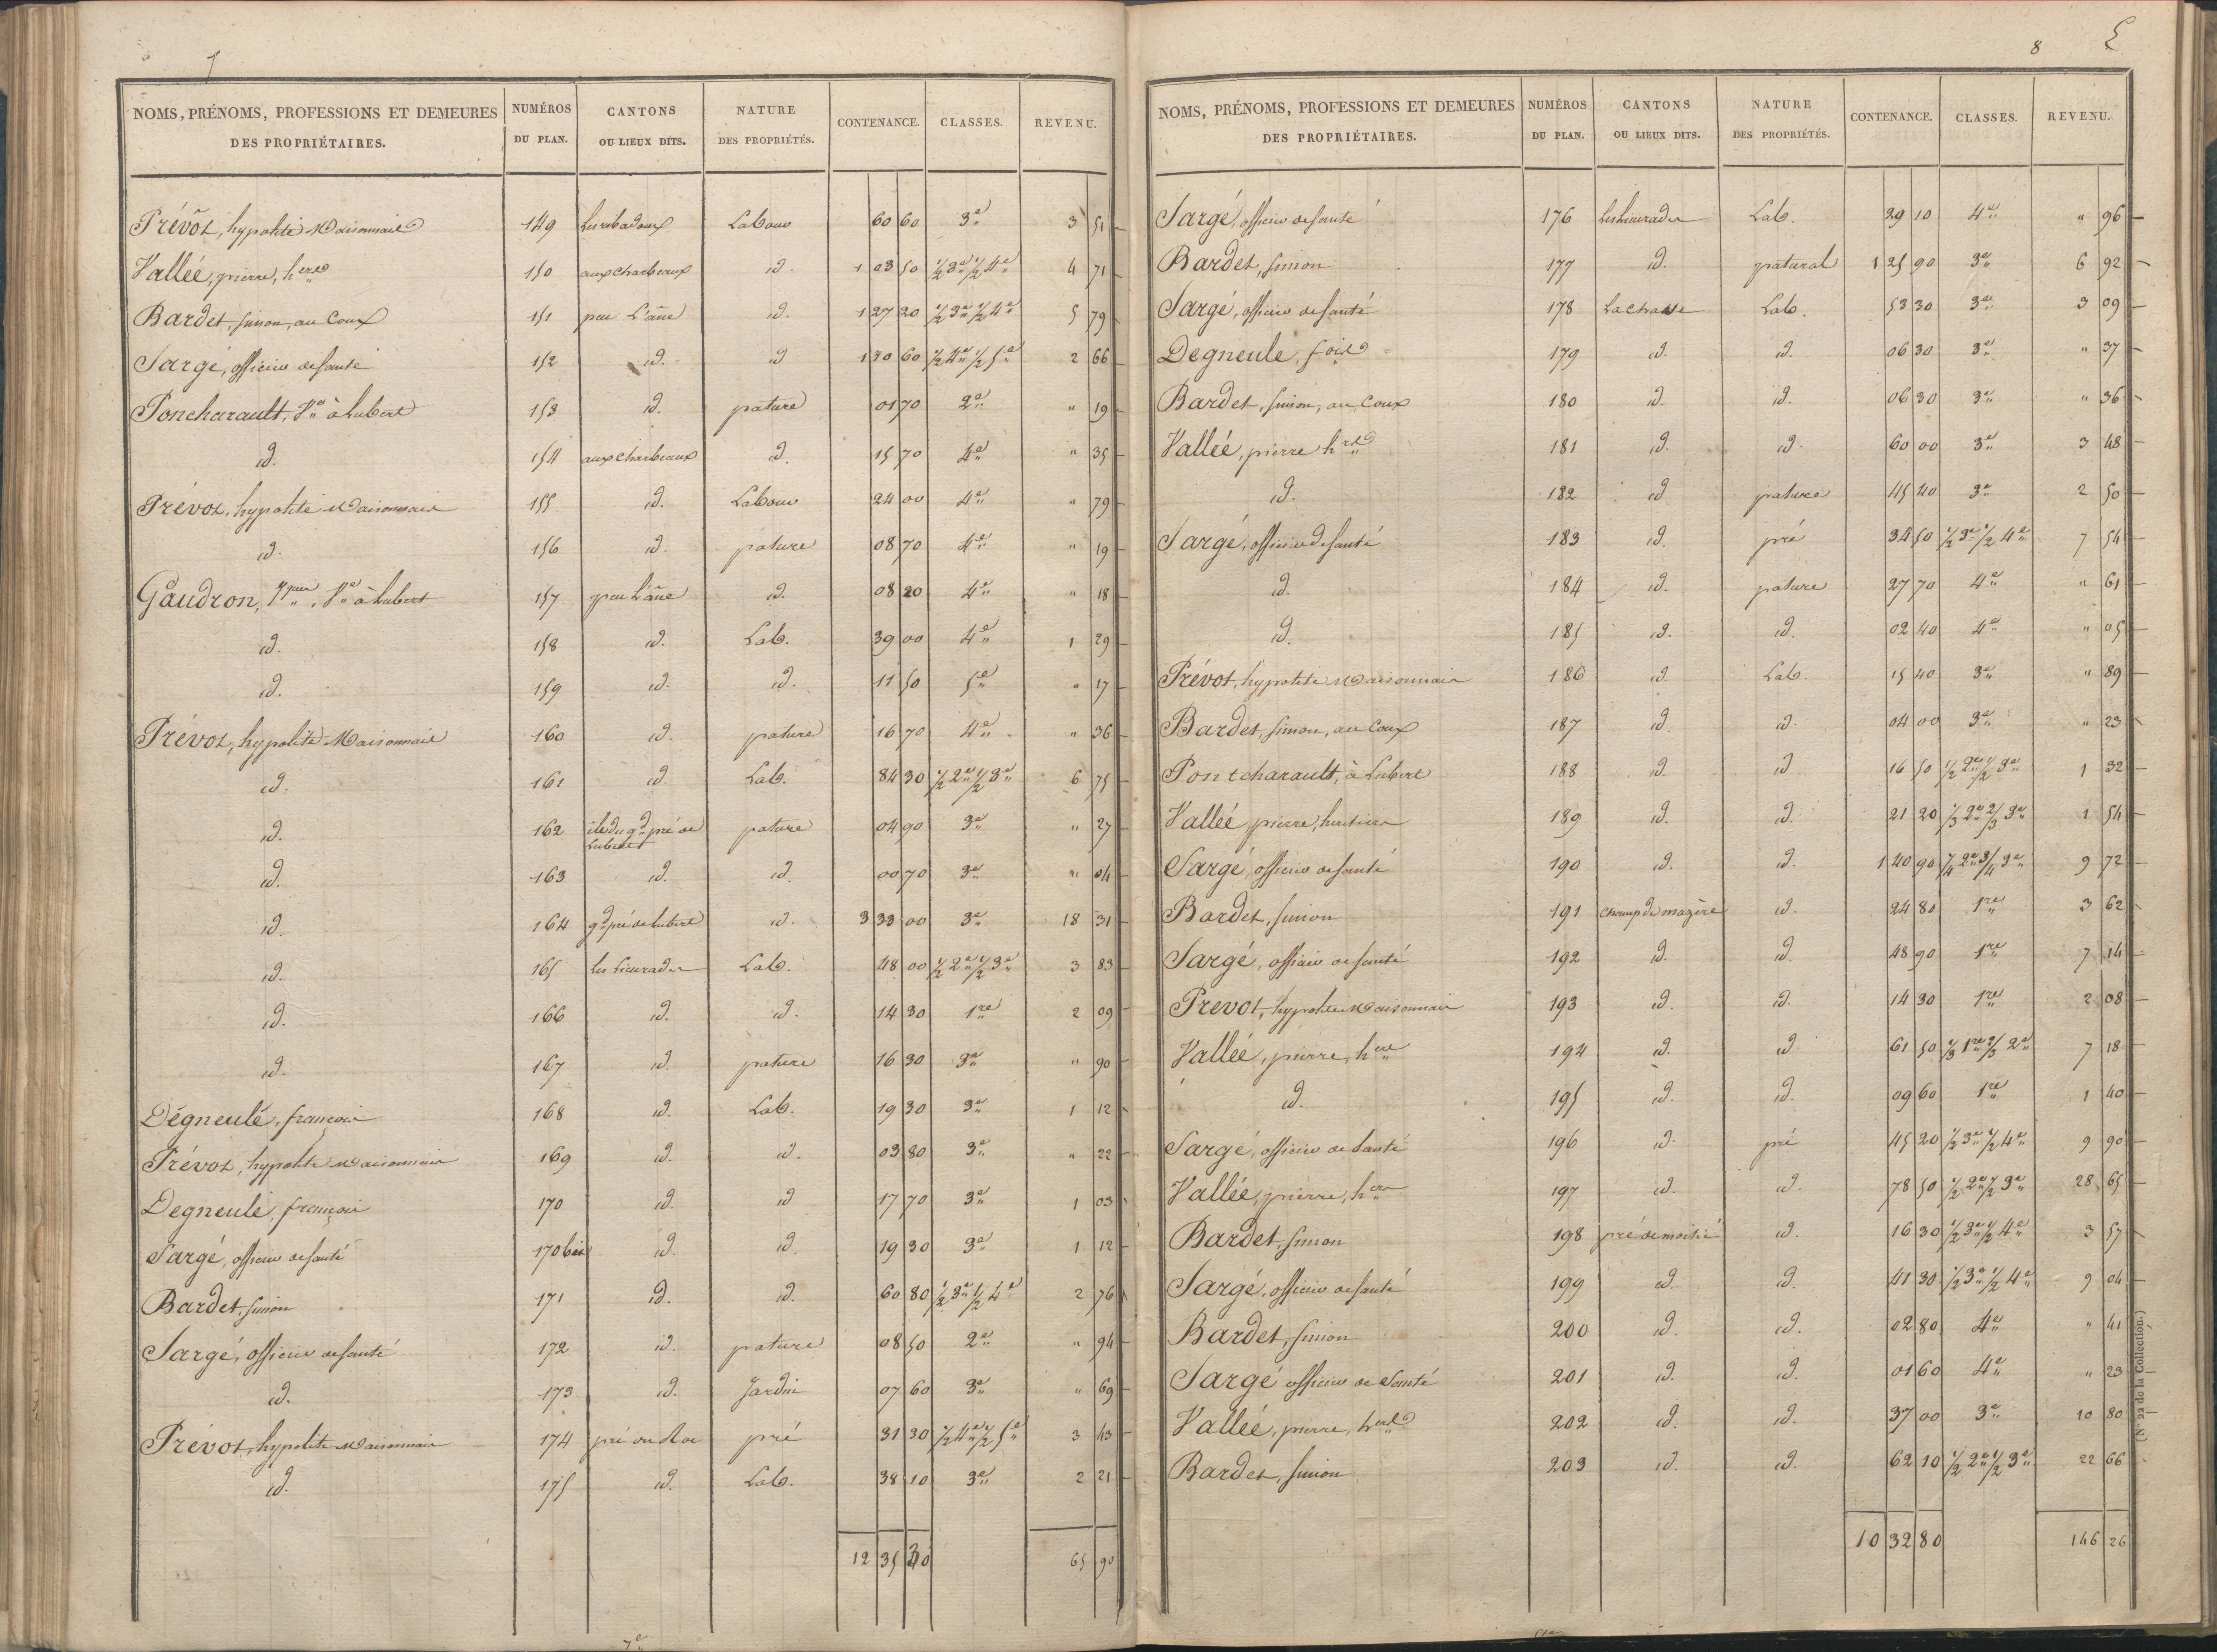 7
NOMS, PRÉNOMS, PROFESSIONS ET DEMEURES DES PROPRIÉTAIRES. NUMÉROS DU PLAN. CANTONS OU LIEUX DITS. NATURE DES PROPRIÉTÉS. CONTENANCE. CLASSES. REVENU.
Prévôt, hypolite Maisonnais 149 Labour 60 60 3e 3 51
Vallée, pierre, hers 150 aux charbeaux id. 1 03 50 1/2 3e 1/2 4e 4 71
Bardet, simon, au Coux 151 peu L'âne id. 1 27 20 1/2 3e 1/2 4e 5 79
Sargé, officier de santé 152 id. id 1 30 60 1/2 4e 1/2 5e 2 66
Poncharault, Ve à Lubert 153 id. pature 01 70 2e " 19
id. 154 aux charbeaux id. 15 70 4e " 35
Prévot, hypolite Maisonnais 155 id. Labour 24 00 4e " 79
id. 156 id. pature 08 70 4e " 19
Gaudron, Ve à Lubert 157 peu L'âne id. 08 20 4e " 18
id. 158 id. Lab. 39 00 4e 1 29
id. 159 id. id. 11 50 5e " 17
Prévot, hypolite Maisonnais 160 id. pature 16 70 4e " 36
id. 161 id. Lab. 84 30 1/2 2e 1/2 3e 6 75
id. 162 ile du gd pré de Lubert pature 04 90 3e " 27
id. 163 id. id. 00 70 3e " 04
id. 164 gd pré de Lubert id. 3 33 00 3e 18 31
id. 165 Les Lieurades Lab. 48 00 1/2 2e 1/2 3e 3 83
id. 166 id. id. 14 30 1re 2 09
id. 167 id. pature 16 30 3e " 90
Dégneulé, françois 168 id. Lab. 19 30 3e 1 12
Prévot, hypolite Maisonnais 169 id. id. 03 80 3e " 22
Degneulé, françois 170 id. id 17 70 3e 1 03
Sargé, officier de santé 170 bis id. id. 19 30 3e 1 12
Bardet, simon 171 id. id. 60 80 1/2 3e 1/2 4e 2 76
Sargé, officier de santé 172 id. pature 08 50 2e " 94
id. 173 id. Jardin 07 60 3e " 69
Prévot, hypolite Maisonnais 174 pré du Roc pré 31 30 1/2 4e 1/2 5e 3 43
id. 175 id. Lab. 38 10 3e 2 21
12 35 30 65 90
7e
8
NOMS, PRÉNOMS, PROFESSIONS ET DEMEURES DES PROPRIÉTAIRES. NUMÉROS DU PLAN. CANTONS OU LIEUX DITS. NATURE DES PROPRIÉTÉS. CONTENANCE. CLASSES. REVENU.
Sargé, officier de santé 176 Les Lieurades Lab. 29 10 4e " 96
Bardet, simon 177 id. patural 1 25 90 3e 6 92
Sargé, officier de santé 178 La chasse Lab. 53 30 3e 3 09
Degneule, fois 179 id. id. 06 30 3e " 37
Bardet, simon, au Coux 180 id. id. 06 30 3e " 36
Vallée, pierre hers 181 id. id. 60 00 3e 3 48
id. 182 id pature 45 40 3e 2 50
Sargé, officier de santé 183 id. pré 34 50 1/2 3e 1/2 4e 7 54
id. 184 id. pature 27 70 4e " 61
id. 185 id. id. 02 40 4e " 05
Prévot, hypolite Maisonnais 186 id. Lab. 15 40 3e " 89
Bardet, simon, au Coux 187 id. id. 04 00 3e " 23
Pontcharault, à Lubert 188 id. id. 16 50 1/2 2e 1/2 3e 1 32
Vallée pierre, heritiers 189 id. id. 21 20 1/3 2e 2/3 3e 1 54
Sargé, officier de santé 190 id. id. 1 40 90 1/4 2e 3/4 3e 9 72
Bardet, simon 191 champ de mazère id. 24 80 1re 3 62
Sargé, officier de santé 192 id. id. 48 90 1re 7 14
Prevot, hypolite Maisonnais 193 id. id. 14 30 1re 2 08
Vallée, pierre, hers 194 id. id. 61 50 1/3 1re 2/3 2e 7 18
id. 195 id. id. 09 60 1re 1 40
Sargé, officier de Santé 196 id. pré 45 20 1/2 3e 1/2 4e 9 90
Vallée, pierre, hers 197 id. id. 78 50 1/2 2e 1/2 3e 28 65
Bardet, simon 198 pré de moitié id. 16 30 1/2 3e 1/2 4e 3 57
Sargé, officier de santé 199 id. id. 41 30 1/2 3e 1/2 4e 9 04
Bardet, simon 200 id. id. 02 80 4e " 41
Sargé officier de Santé 201 id. id. 01 60 4e " 23
Vallée, pierre, hers 202 id. id. 37 00 3e 10 80
Bardet, simon 203 id. id. 62 10 1/2 2e 1/2 3e 22 66
10 32 80 146 26
(N° 22 de la Collection.)